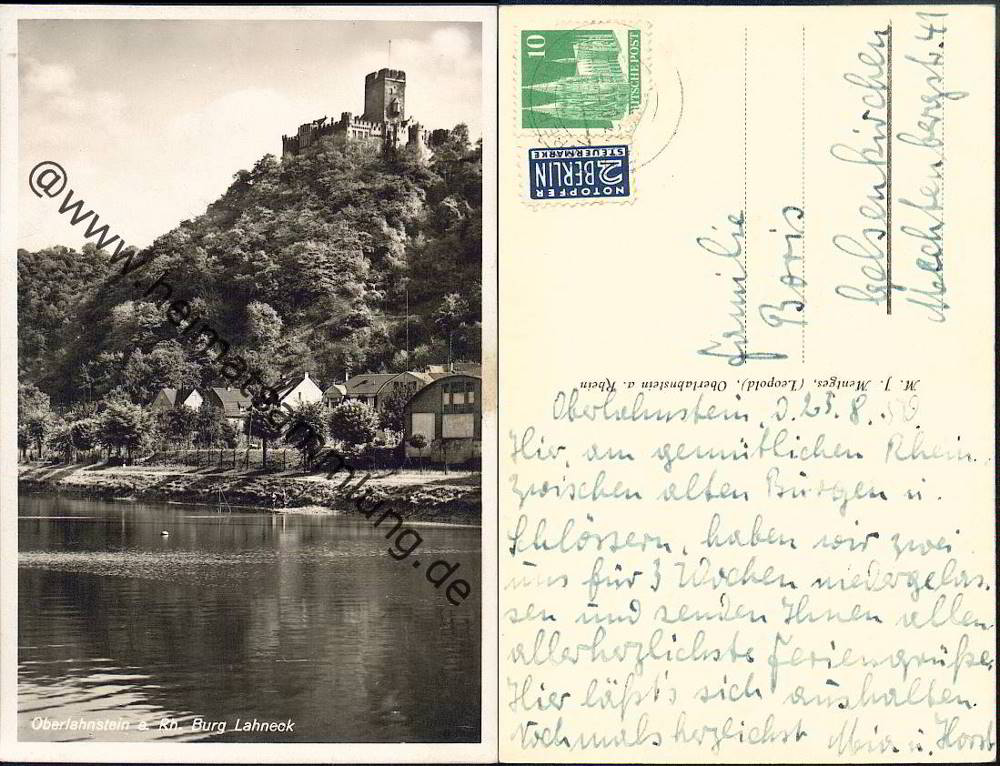 @www.heimatsammlung.de
Oberlahnstein a. Rh. Burg Lahneck
10
DEUTSCHE POST
NOTOPFER
2 BERLIN
STEUERMARKE
Familie
Boris
Gelsenkirchen
Mechtenbergstr. 41
M. J. Mentges, (Leopold), Oberlahnstein a. Rhein
Oberlahnstein, d. 25.8.50
Hier, am gemütlichen Rhein,
zwischen alten Burgen u.
Schlössern, haben wir zwei
uns für 3 Wochen niedergelas-
sen und senden Ihnen allen
allerherzlichste Feriengrüße.
Hier läßt's sich aushalten.
Nochmals herzlichst Mia u. Horst